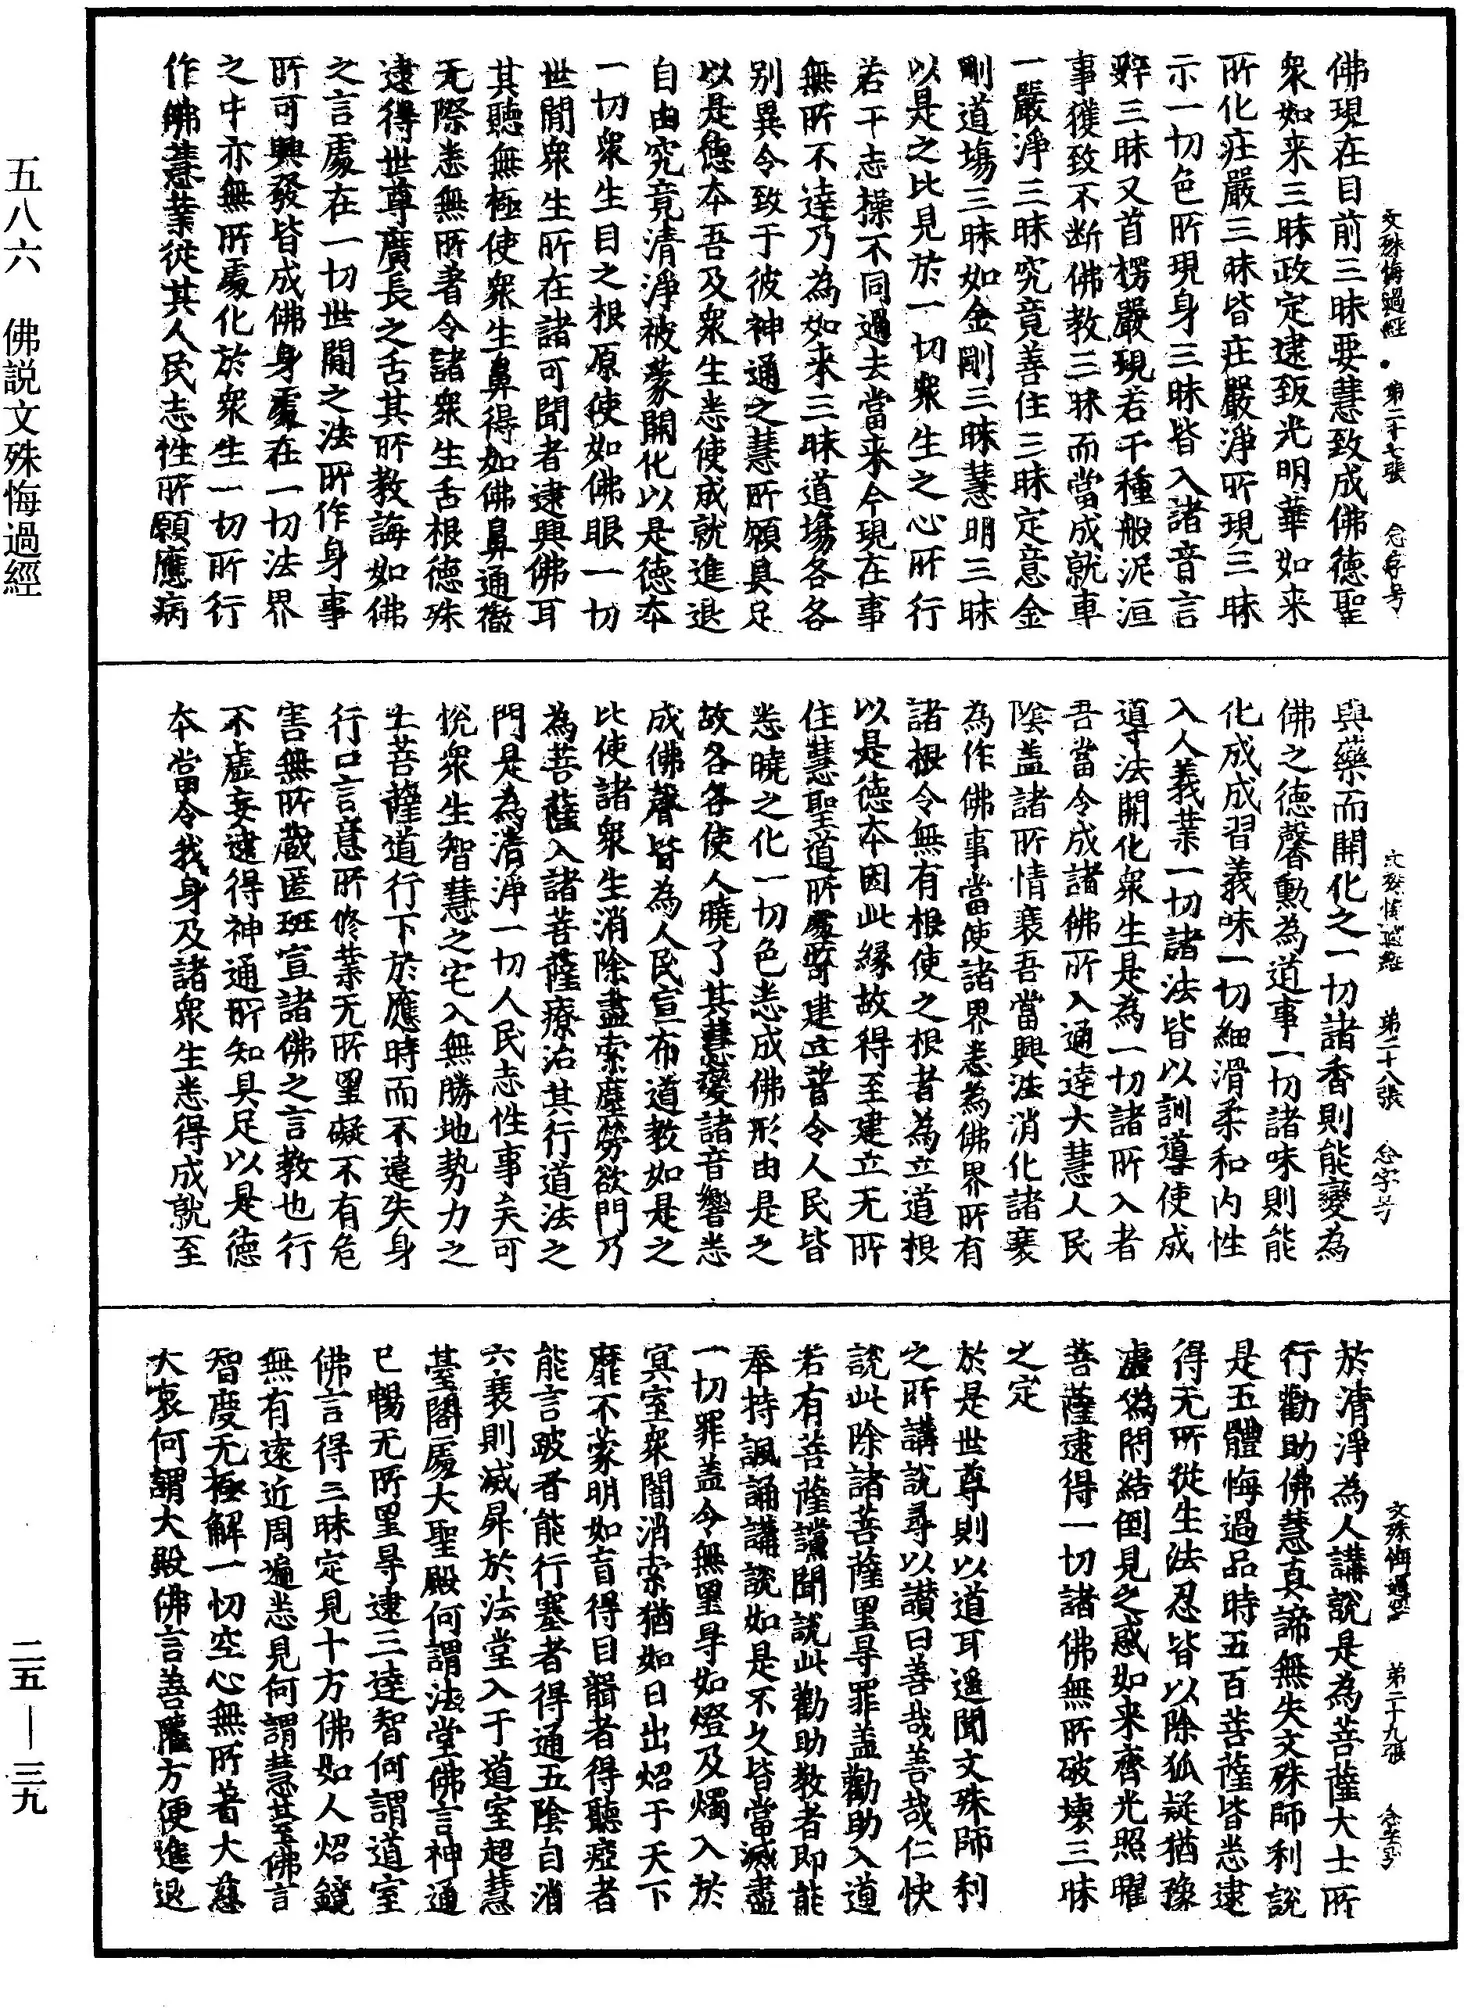 五八六　佛説文殊悔過經
二五—三九
文殊悔過經　第二十七張　念字号
佛現在目前三昧要慧致成佛德聖
衆如来三昧政定逮致光明華如来
所化莊嚴三昧皆莊嚴淨所現三昧
示一切色所現身三昧皆入諸音言
辤三昧又首楞嚴現若干種般泥洹
事獲致不断佛教三昧而當成就專
一嚴淨三昧究竟善住三昧定意金
剛道場三昧如金剛三昧慧明三昧
以是之比見於一切衆生之心所行
若干志操不同過去當来今現在事
無所不達乃為如来三昧道場各各
別異令致于彼神通之慧所願具足
以是德夲吾及衆生悉使成就進退
自由究竟清淨被蒙開化以是德夲
一切衆生目之根原使如佛眼一切
世間衆生所在諸可聞者逮興佛耳
其聽無極使衆生鼻得如佛鼻通徹
无際悉無所著令諸衆生舌根德殊
逮得世尊廣長之舌其所教誨如佛
之言處在一切世間之法所作身事
所可興發皆成佛身處在一切法界
之中亦無所處化於衆生一切所行
作佛慧業從其人民志性所願應病
文殊悔過經　第二十八張　念字号
與藥而開化之一切諸香則能變為
佛之德馨勳為道事一切諸味則能
化成成習義味一切細滑柔和内性
入人義業一切諸法皆以訓導使成
導法開化衆生是為一切諸所入者
吾當令成諸佛所入通達大慧人民
陰盖諸所情衰吾當興法消化諸衰
為作佛事當使諸界悉為佛界所有
諸根令無有根使之根者為立道根
以是德夲因此縁故得至建立无所
住慧聖道所處所建立普令人民皆
悉曉之化一切色悉成佛形由是之
故各各使人曉了其慧變諸音響悉
成佛聲皆為人民宣布道教如是之
比使諸衆生消除盡索塵勞欲門乃
為菩薩入諸菩薩療治其行道法之
門是為清淨一切人民志性事矣可
悅衆生智慧之宅入無勝地勢力之
士菩薩道行下於應時而不違失身
行口言意所修業无所罣礙不有危
害無所蔵匿班宣諸佛之言教也行
不虚妄逮得神通所知具足以是德
夲當令我身及諸衆生悉得成就至
文殊悔過經　第二十九張　念字号
於清淨為人講說是為菩薩大士所
行勸助佛慧真諦無失文殊師利說
是五體悔過品時五百菩薩皆悉逮
得无所從生法忍皆以除狐疑猶豫
虚偽閇結倒見之惑如来齊光照曜
菩薩逮得一切諸佛無所破壊三昧
之定
於是世尊則以道耳遥聞文殊師利
之所講說尋以讃曰善哉善哉仁快
說此除諸菩薩罣㝵罪盖勸助入道
若有菩薩讜聞說此勸助教者即能
奉持諷誦講說如是不久皆當滅盡
一切罪盖令無罣㝵如燈及燭入於
冥室衆闇消索猶如日出炤于天下
靡不蒙明如盲得目聾者得聽瘂者
能言跛者能行塞者得通五陰自消
六衰則滅昇於法堂入于道室超慧
臺閣處大聖殿何謂法堂佛言神通
已暢无所罣㝵逮三達智何謂道室
佛言得三昧定見十方佛如人炤鏡
無有遠近周遍悉見何謂慧臺佛言
智度无極解一切空心無所著大慈
大哀何謂大殿佛言善權方便進退